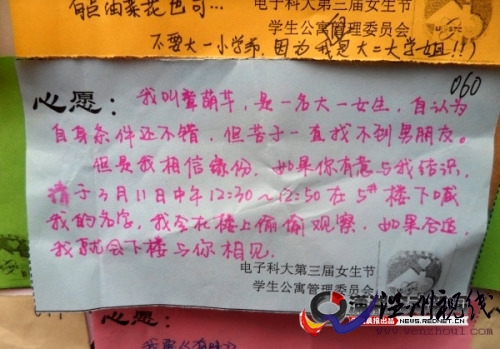 有点油菜花也可...
电子科大第三届女生节
学生公寓管理委员会
不要大一小学弟,因为我是大二大学姐!!)
060
心愿:我叫龚萌芊,是一名大一女生,自认为
自身条件还不错,但苦于一直找不到男朋友。
但是我相信缘份,如果你有意与我结识,
请于3月11日中午12:30~12:50在5#楼下喊
我的名字,我会在楼上偷偷观察,如果合适,
我就会下楼与你相见。
电子科大第三届女生节
学生公寓管理委员会
心愿:
NEWS.REDNET.CN
www.wenzhou1.com